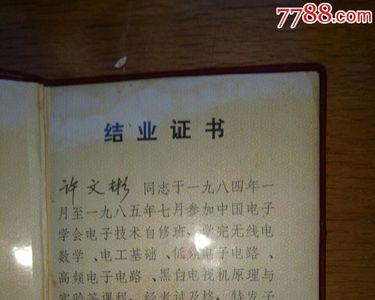 7788.com
结业证书
许文彬 同志于一九八四年一
月至一九八五年七月参加中国电子
学会电子技术自修班、学完无线电
数学、电工基础、低频电子电路、
高频电子电路、黑白电视机原理与
实验等课程，经考试及格，特发子